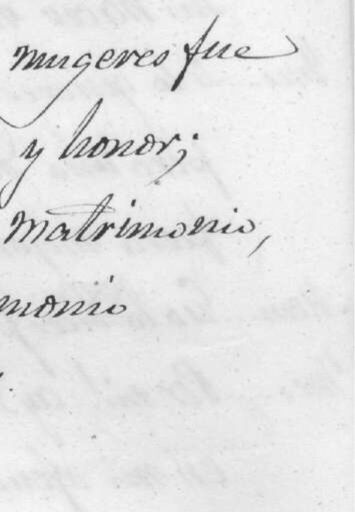 mugeres fue
y honor;
matrimonio,
monio